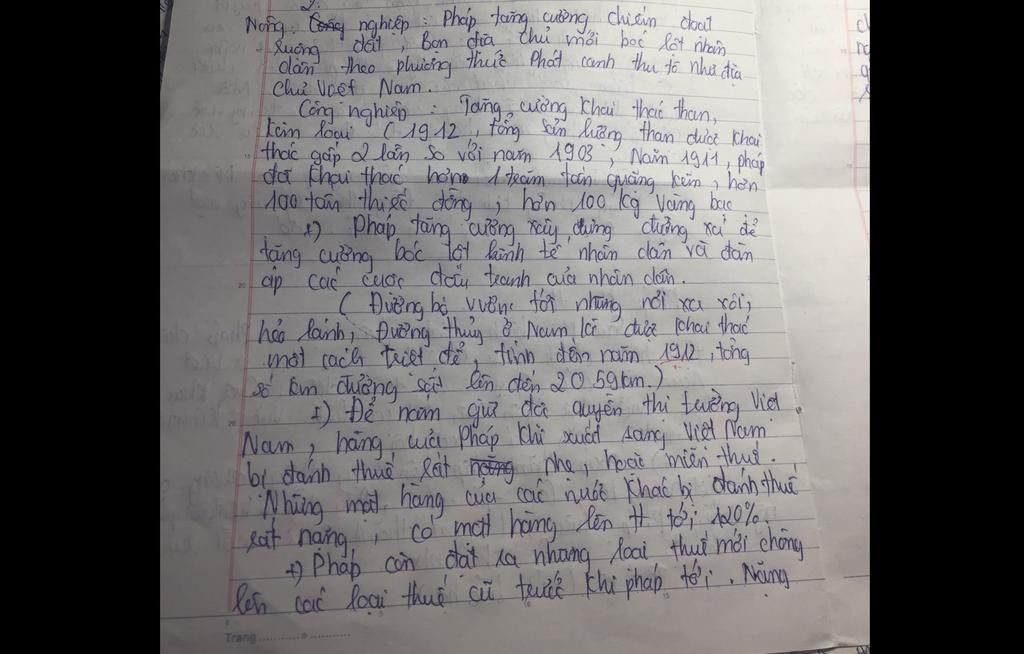 2.
Nông nghiệp : Pháp tăng cường chiếm đoạt
ruộng đất, Bọn địa chủ mới bóc lột nhân
dân theo phương thức Phát canh thu tô như địa
chủ Việt Nam.
Công nghiệp : Tăng cường khai thác than,
kim loại ( 1912, tổng sản lượng than được khai
thác gấp 2 lần so với năm 1903, Năm 1911, pháp
đã khai thác hơn 1 trăm tấn quặng kẽm, hơn
100 tấn thiếc đồng, hơn 100 kg vàng bạc
+) Pháp tăng cường xây dựng đường xá để
tăng cường bóc lột kinh tế nhân dân và đàn
áp các cuộc đấu tranh của nhân dân.
( Đường bộ vươn tới những nơi xa xôi,
hẻo lánh, Đường thủy ở Nam kì được khai thác
một cách triệt để, tính đến năm 1912, tổng
số km đường sắt lên đến 2059km.)
+) Để nắm giữ độc quyền thị trường Việt
Nam, hàng của Pháp khi xuất sang Việt Nam
bị đánh thuế rất nhẹ, hoặc miễn thuế.
Những mặt hàng của các nước khác bị đánh thuế
rất nặng, có mặt hàng lên tới 120%.
+) Pháp còn đặt ra nhưng loại thuế mới chồng
lên các loại thuế cũ trước khi pháp tới. Nặng
Trang